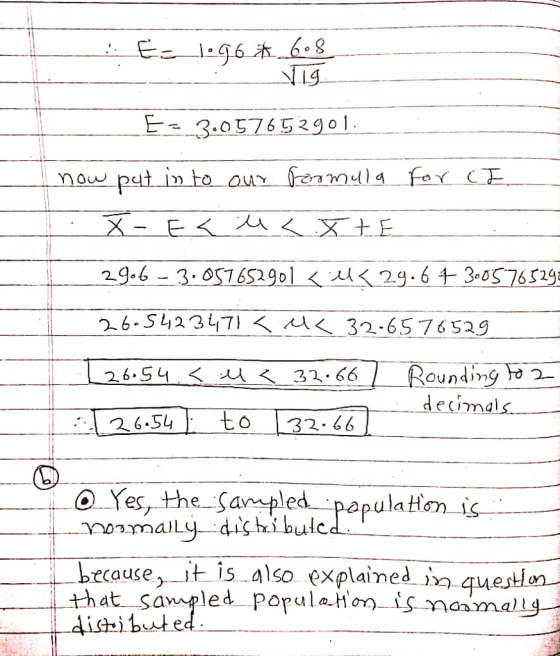 ∴ E = 1.96 * 6.8
√19
E = 3.057652901.
now put in to our formula for CI
X̄ - E < μ < X̄ + E
29.6 - 3.057652901 < μ < 29.6 + 3.05765290
26.5423471 < μ < 32.6576529
26.54 < μ < 32.66 Rounding to 2
decimals
∴ 26.54 to 32.66
(b)
Yes, the sampled population is
normally distributed.
because, it is also explained in question
that sampled population is normally
distributed.